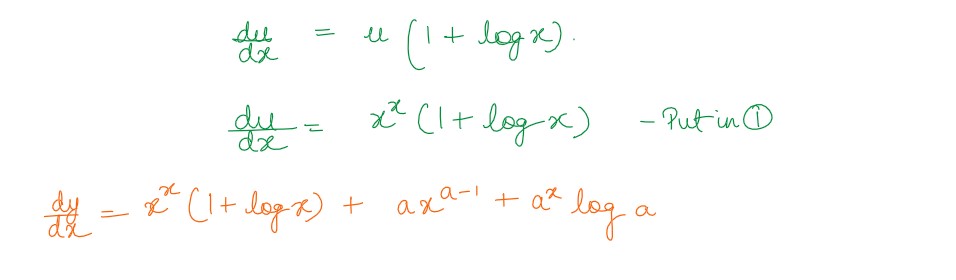 du/dx = u (1 + log x).
du/dx = x^x (1 + log x) - Put in ①
dy/dx = x^x (1 + log x) + ax^(a-1) + a^x log a